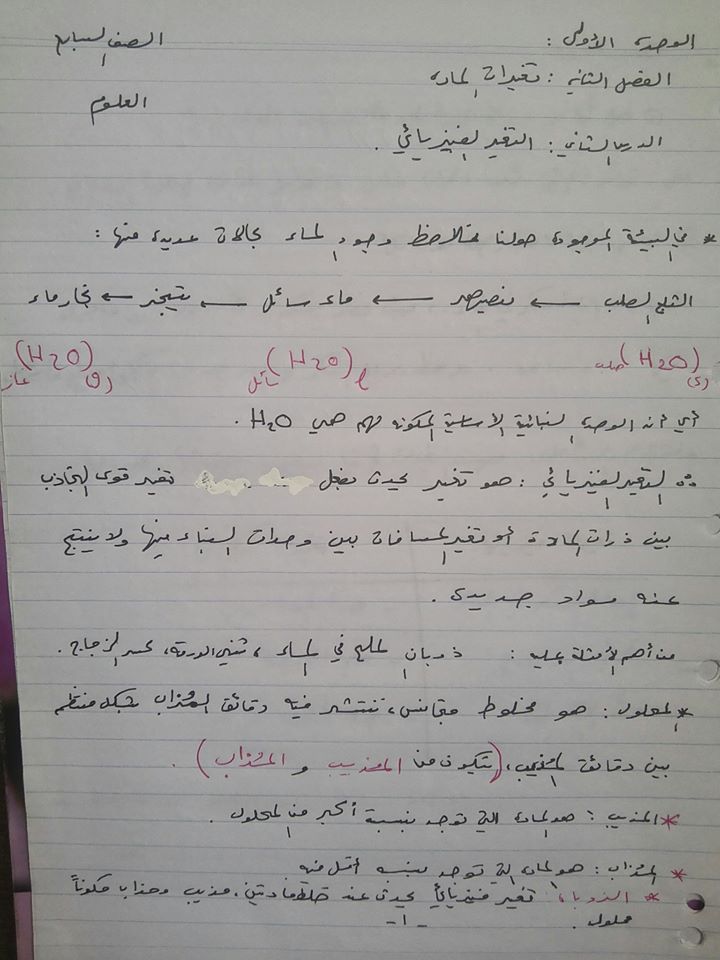 الوحدة الأولى : الصف السابع
الفصل الثاني : تغيرات المادة
العلوم
الدرس الثاني : التغير الفيزيائي .
* في البيئة الموجودة حولنا نلاحظ وجود الماء بحالات عديدة منها :
الثلج الصلب ← ينصهر ← ماء سائل ← يتبخر ← بخار ماء
(H2O)(s) صلب (H2O)l سائل (H2O)(g) غاز
أي أن الوحدة البنائية الأساسية المكونة لهم هي H2O .
التغير الفيزيائي : هو تغير يحدث بفعل تغير قوى التجاذب
بين ذرات المادة أو تغير المسافات بين وحدات البناء فيها ولا ينتج
عنه مواد جديدة .
من أهم الأمثلة عليه : ذوبان الملح في الماء ، ثني الورقة ، كسر الزجاج .
* المحلول : هو مخلوط متجانس ، تنتشر فيه دقائق المُذاب بشكل منتظم
بين دقائق المُذيب ، (يتكون من المذيب و المُذاب) .
* المذيب : هو المادة التي توجد بنسبة أكبر من المحلول .
* المُذاب : هو المادة التي توجد بنسبة أقل منه
* الذوبان تغير فيزيائي يحدث عند خلط مادتين ، مذيب ومذاب مكوناً
محلول .
-1-